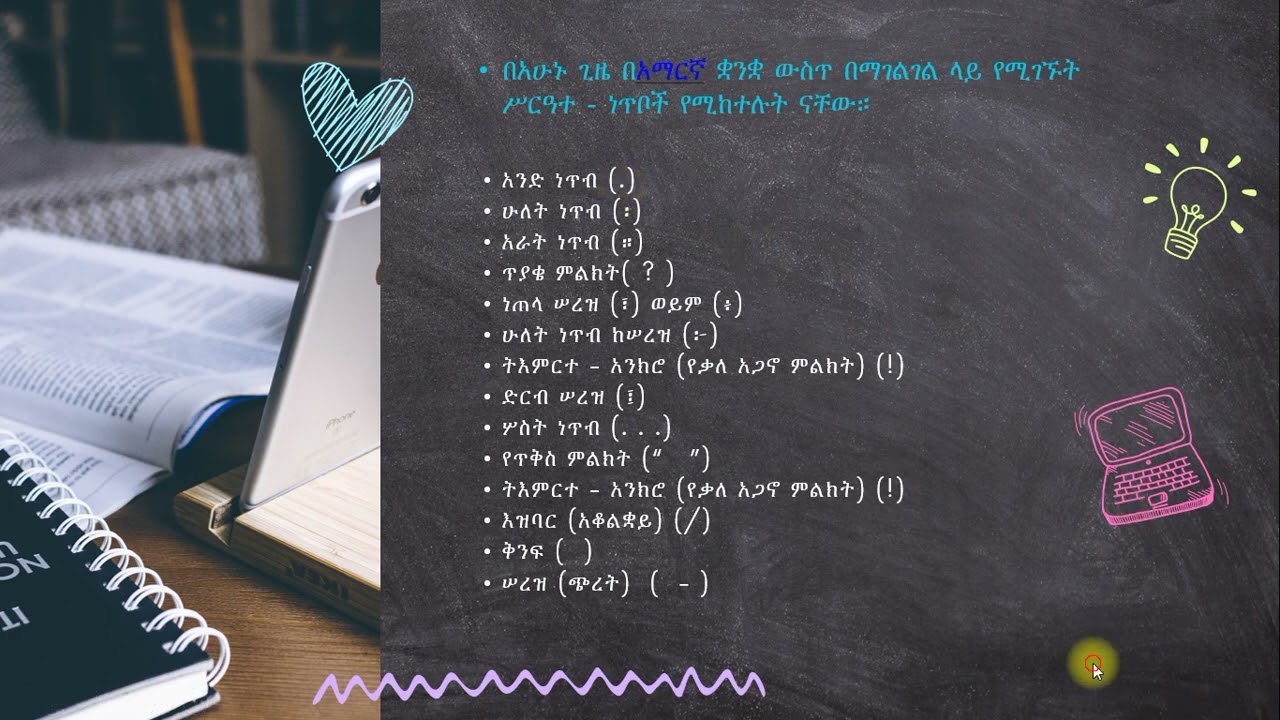 • በአሁኑ ጊዜ በአማርኛ ቋንቋ ውስጥ በማገልገል ላይ የሚገኙት
ሥርዓተ - ነጥቦች የሚከተሉት ናቸው።
• አንድ ነጥብ (.)
• ሁለት ነጥብ (፡)
• አራት ነጥብ (።)
• ጥያቄ ምልክት( ? )
• ነጠላ ሠረዝ (፣) ወይም (፥)
• ሁለት ነጥብ ከሠረዝ (፡-)
• ትእምርተ – አንክሮ (የቃለ አጋኖ ምልክት) (!)
• ድርብ ሠረዝ (፤)
• ሦስት ነጥብ (. . .)
• የጥቅስ ምልክት (“ ”)
• ትእምርተ – አንክሮ (የቃለ አጋኖ ምልክት) (!)
• እዝባር (አቆልቋይ) (/)
• ቅንፍ ( )
• ሠረዝ (ጭረት) ( – )
iPhone
IKEA